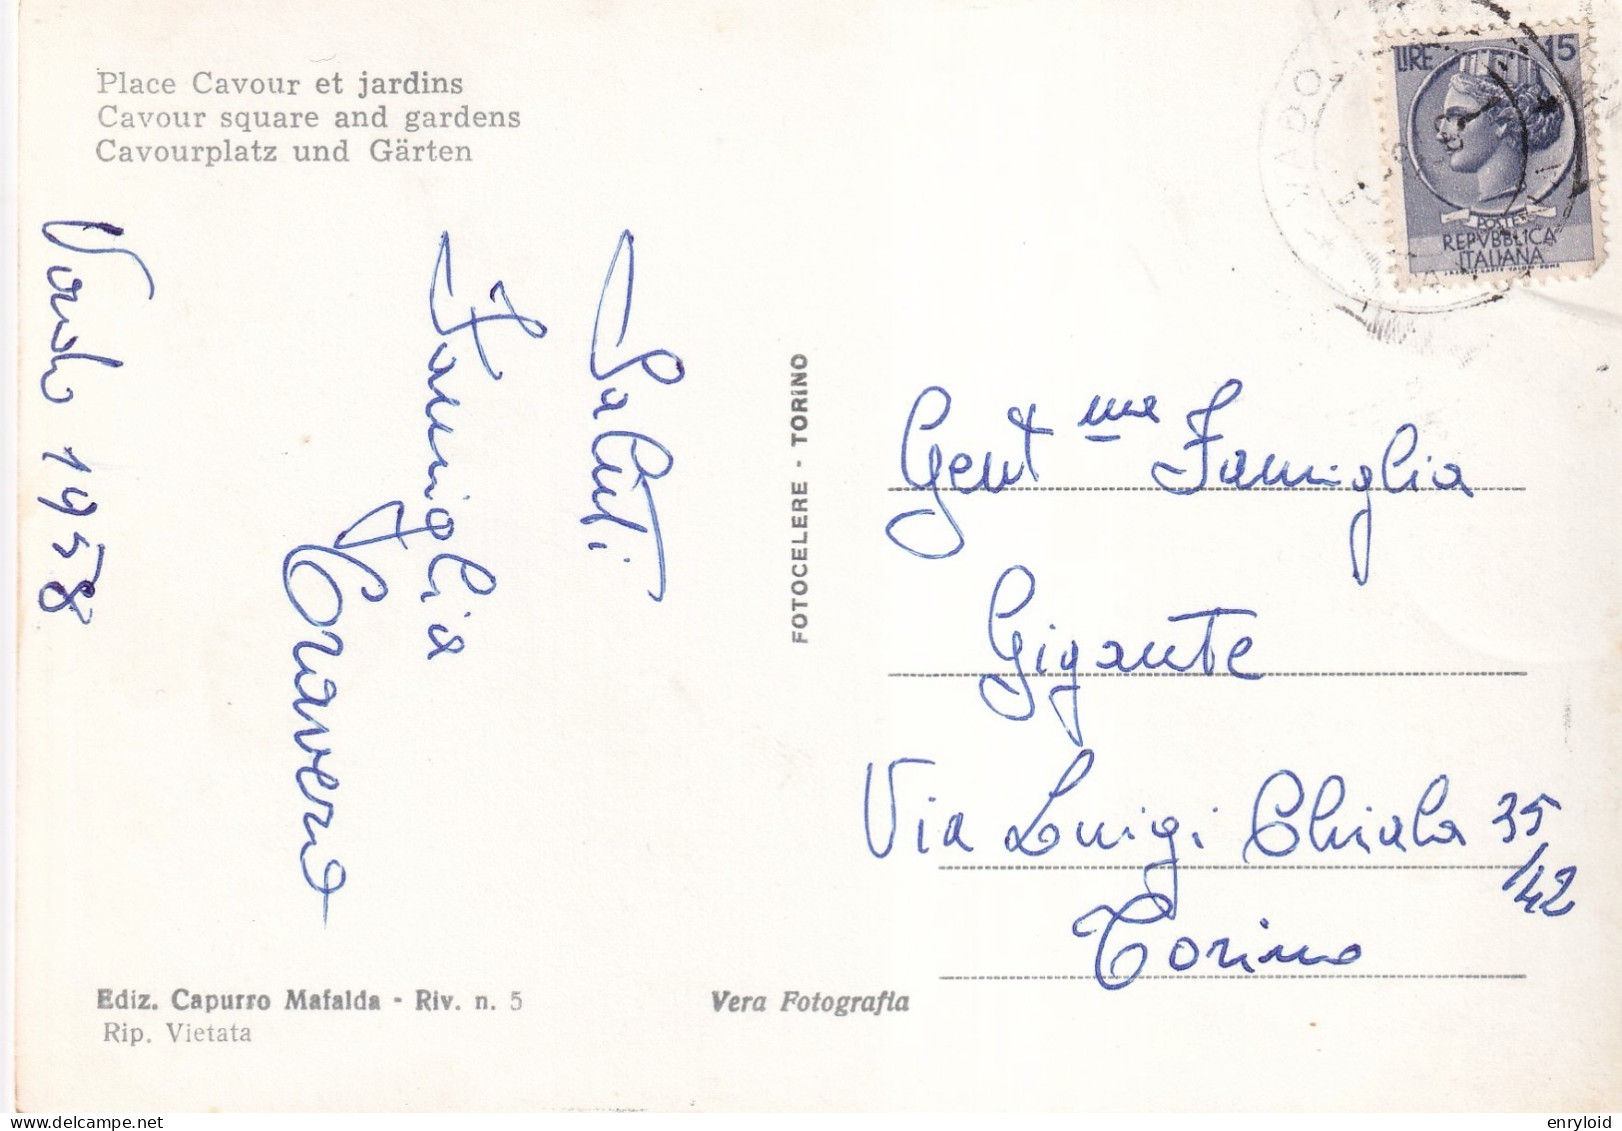 Place Cavour et jardins
Cavour square and gardens
Cavourplatz und Gärten
Vado 1958
Saluti
Famiglia
Cravero
FOTOCELERE - TORINO
LIRE 15
POSTE
REPVBBLICA
ITALIANA
Gent.me Famiglia
Gigante
Via Luigi Chiala 35
/42
Torino
Ediz. Capurro Mafalda - Riv. n. 5
Rip. Vietata
Vera Fotografia
enryloid